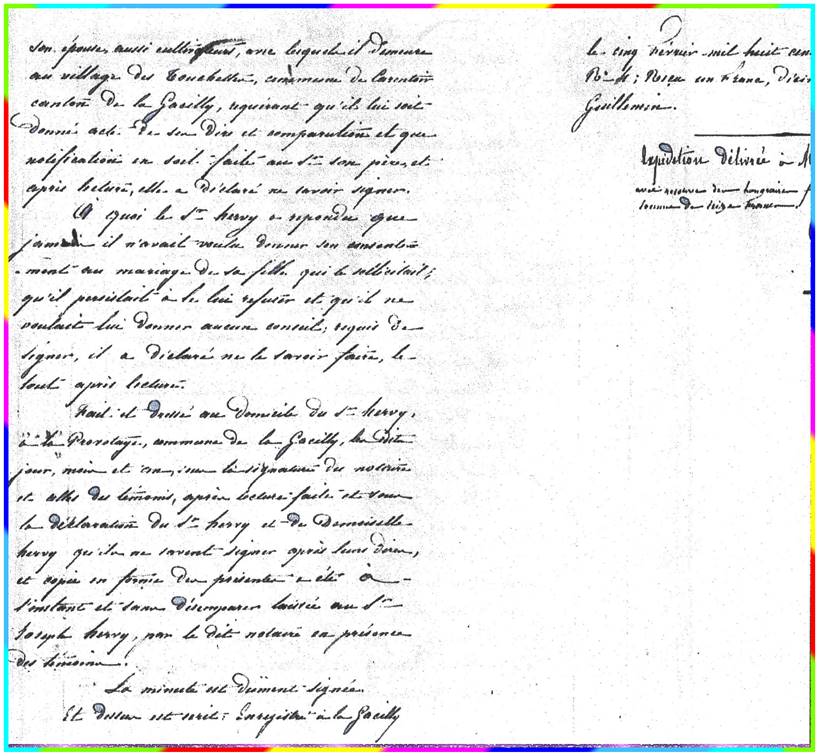 son épouse, aussi cultivateurs, avec lesquels il demeure
au village des Touchettes, commune de Carentoir
canton de la Gacilly, requérant qu'il lui soit
donné acte de son dire et comparution et que
notification en soit faite au Sr. son père, et
après lecture, elle a déclaré ne savoir signer.
A quoi le Sr. hervy a répondu que
jamais il n'avait voulu donner son consente-
-ment au mariage de sa fille qui le sollicitait;
qu'il persistait à le lui refuser et qu'il ne
voulait lui donner aucun conseil; requis de
signer, il a déclaré ne le savoir faire, le
tout après lecture.
Fait et dressé au domicile du Sr. hervy,
à la Provotaye, commune de la Gacilly, les dits
jour, mois et an, sous la signature du notaire
et celles des témoins, après lecture faite et sous
la déclaration du Sr. hervy et de Demoiselle
hervy qu'ils ne savent signer après leurs dires,
et copie en forme des présentes a été à
l'instant et sans désemparer laissée au Sr.
Joseph hervy, par le dit notaire en présence
des témoins.
La minute est dûment signée.
Et dessus est écrit: Enregistré à la Gacilly
le cinq Février mil huit cen
Reçu un Franc, dixi
Guillemin.
Expédition délivrée à M
avec réserve des honoraires
somme de seize Francs.